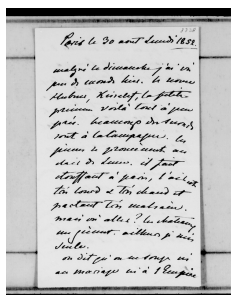 Paris le 30 aout Lundi 1852.
malgré le dimanche j'ai vu
peu de monde hier. le nonce
Kisseleff, la petite
princesse voilà tout à peu
près. beaucoup de monde
sont à la campagne. les
se promenent au
clair de lune. il fait
étouffant à Paris, l'air est
très lourd & très chaud et
partant très malsain.
mais où aller? les châteaux
me gênent. ailleurs je suis
seule.
on dit qu'on ne songe ni
au mariage ni à l'Empire